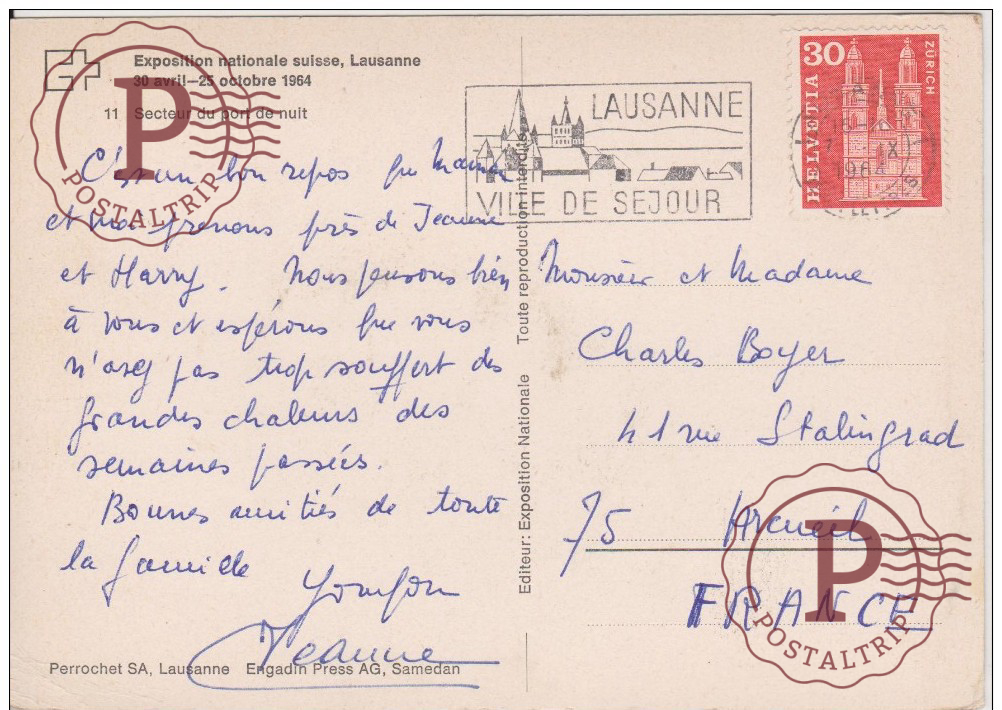 Exposition nationale suisse, Lausanne
30 avril–25 octobre 1964
11 Secteur du port de nuit
C'est un bon repos que Maman
et moi prenons près de Jeanne
et Harry. Nous pensons bien
à vous et espérons que vous
n'avez pas trop souffert des
grandes chaleurs des
semaines passées.
Bonnes amitiés de toute
la famille
Jeanne
Perrochet SA, Lausanne Engadin Press AG, Samedan
Editeur: Exposition Nationale Toute reproduction interdite
LAUSANNE
VILLE DE SEJOUR
30
HELVETIA
ZÜRICH
IX
1964
Monsieur et Madame
Charles Boyer
41 rue Stalingrad
75 Arcueil
FRANCE
P
POSTALTRIP
P
POSTALTRIP